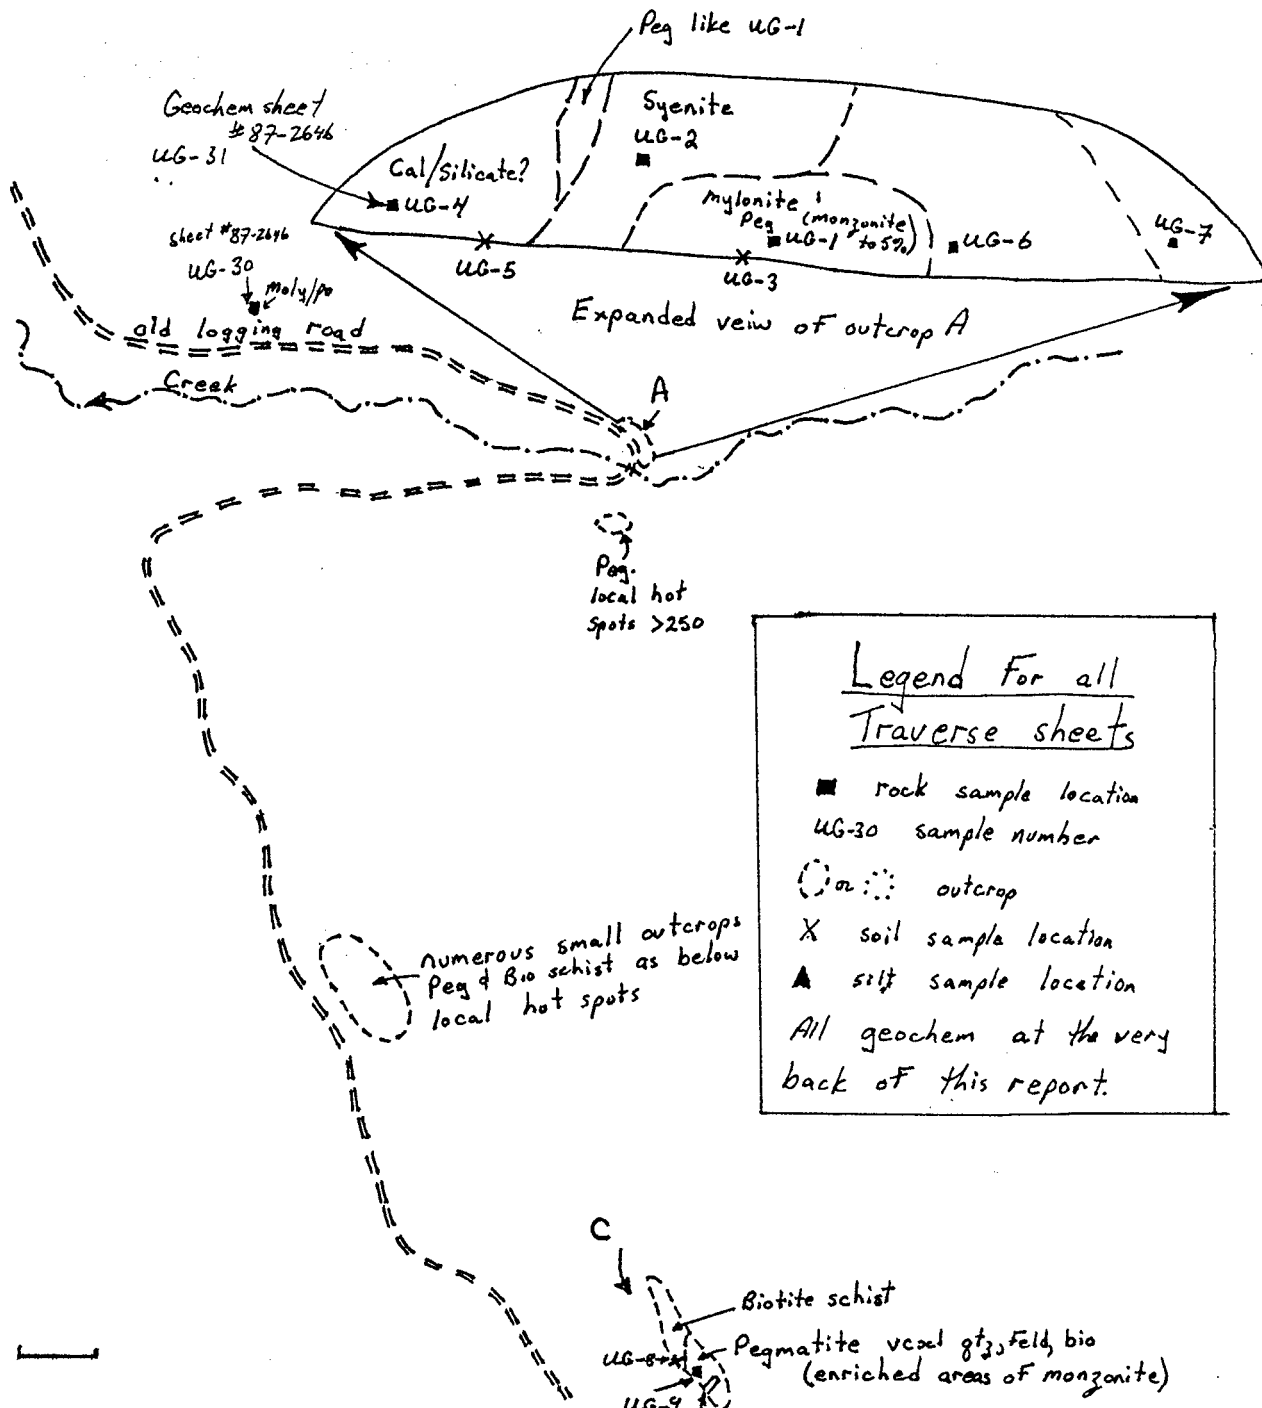 Peg like UG-1
Geochem sheet
#87-2646
UG-31
Syenite
UG-2
Cal/Silicate?
UG-4
mylonite
Peg (monzonite
UG-1 to 5%)
UG-6
UG-7
sheet #87-2646
UG-30
moly/po
UG-5
UG-3
Expanded veiw of outcrop A
old logging road
Creek
A
Peg.
local hot
spots >250
Legend For all
Traverse sheets
rock sample location
UG-30 sample number
or outcrop
X soil sample location
silt sample location
All geochem at the very
back of this report.
numerous small outcrops
Peg & Bio schist as below
local hot spots
C
Biotite schist
Pegmatite qtz, Feld, bio
(enriched areas of monzonite)
UG-8
UG-9